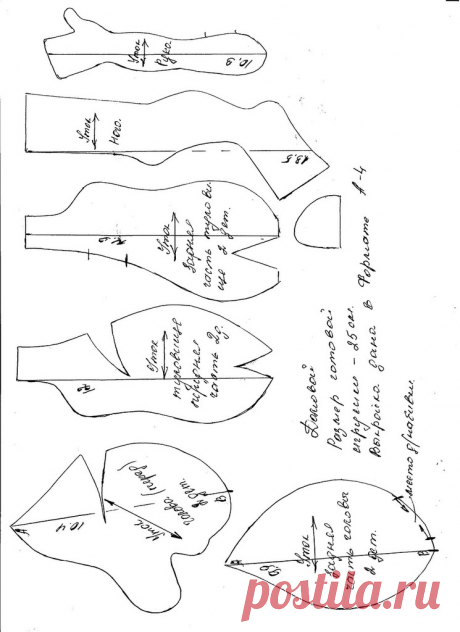 Уток
Рука
10.9
Уток
нога.
13.5
Уток
Задняя
часть тулови
ще 2 дет.
Уток
туловище
передняя
часть 2д.
Домовой
Размер готовой
игрушки - 25 см.
Выкройка дана в Формате А-4
А
10.4
Уток
голова (перед)
2 дет.
В
А
9.9
Уток
Задняя
часть головы
2 дет.
В
место д/набивки.
postila.ru